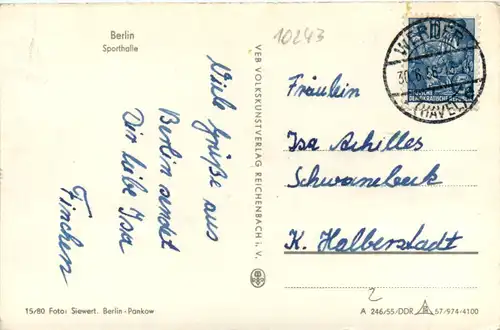 Berlin
Sporthalle
10243
Viele Grüße aus
Berlin sendet
Dir liebe Isa
Finchen
VEB VOLKSKUNSTVERLAG REICHENBACH i. V.
WERDER
(HAVEL)
DEUTSCHE
DEMOKRATISCHE REPUBLIK
Fräulein
Isa Achilles
Schwanebeck
K. Halberstadt
2
15/80 Foto: Siewert, Berlin-Pankow
A 246/55/DDR 57/974/4100